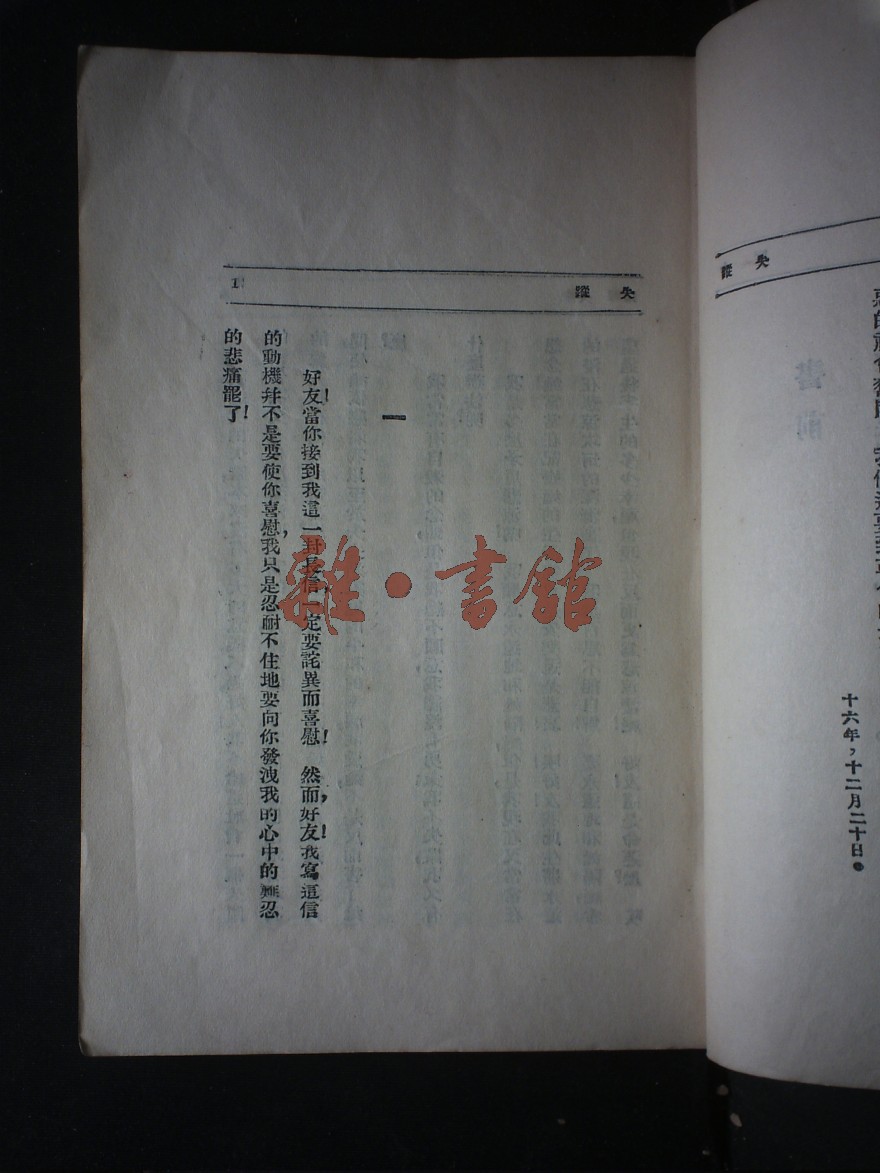 失蹤
十六年,十二月二十日。
失蹤
1
一
好友!當你接到我這一封長信,一定要詫異而喜慰! 然而,好友!我寫這信
的動機幷不是要使你喜慰,我只是忍耐不住地要向你發洩我的心中的忍
的悲痛罷了!
雜·書館